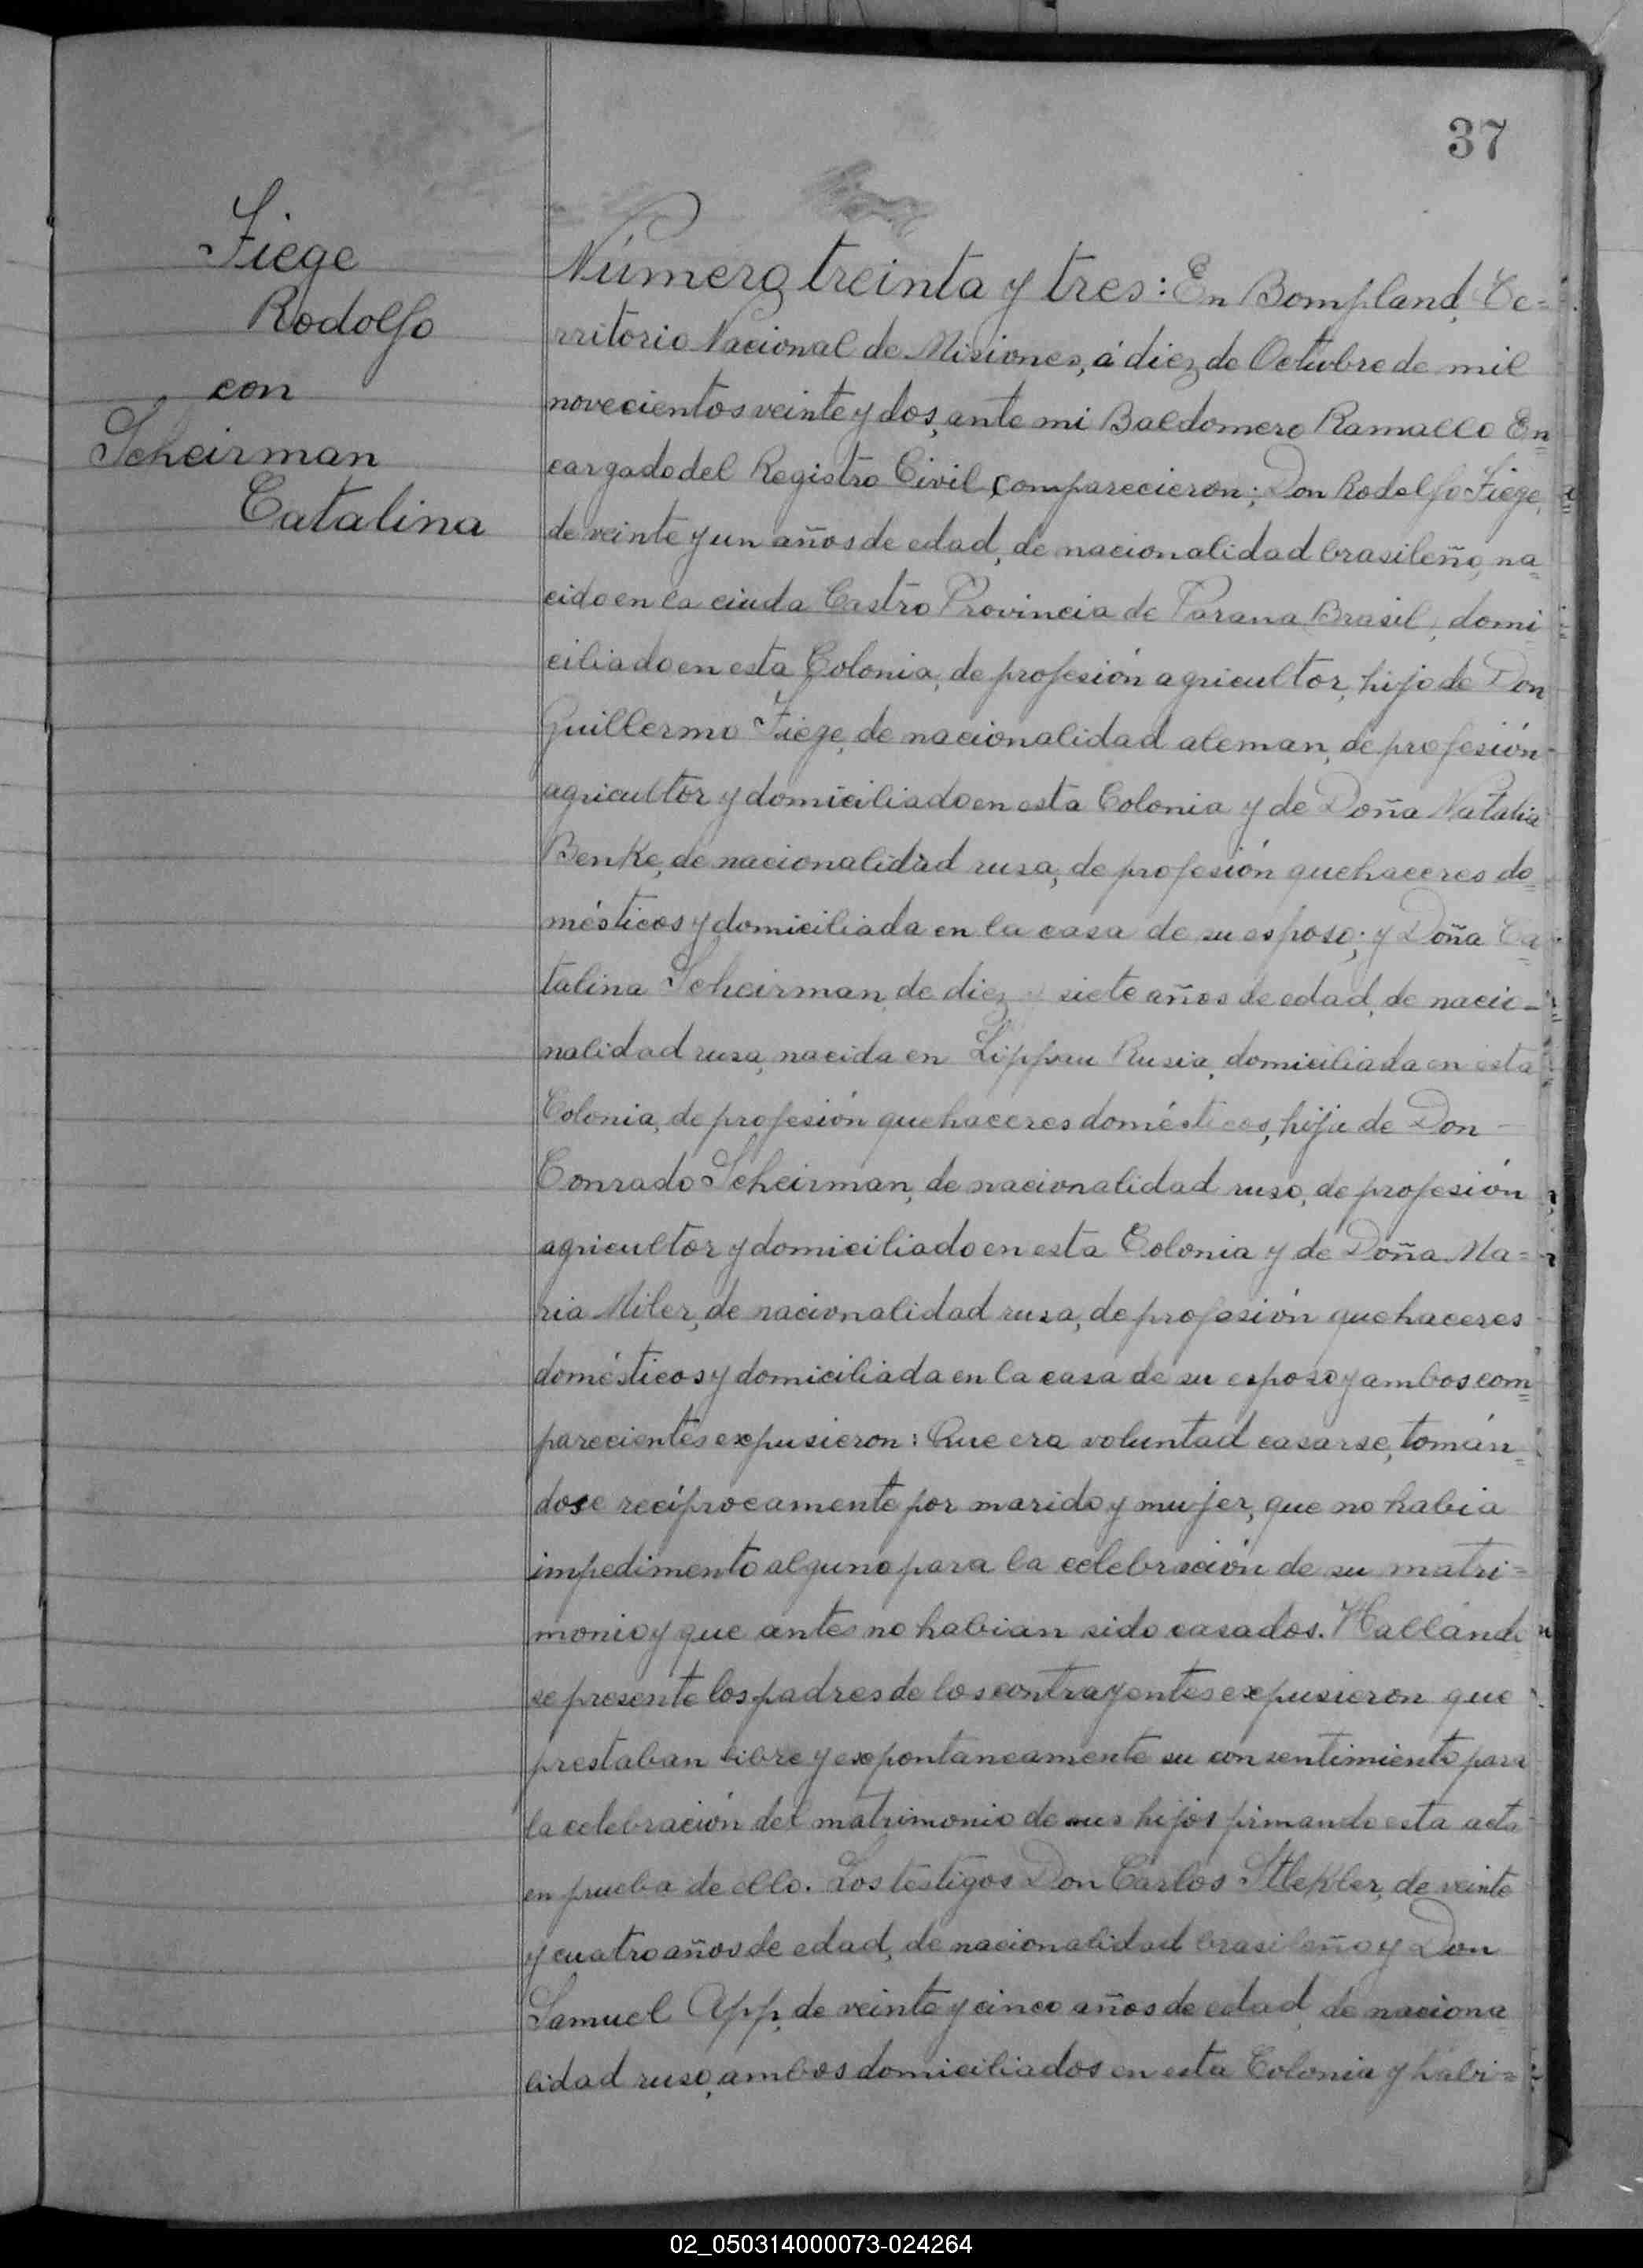 37
Fiege
Rodolfo
con
Scheirman
Catalina
Número treinta y tres: En Bompland, Te=
rritorio Nacional de Misiones, á diez de Octubre de mil
novecientos veinte y dos, ante mi Baldomero Ramallo En=
cargado del Registro Civil, comparecieron; Don Rodolfo Fiege,
de veinte y un años de edad, de nacionalidad brasileño, na=
cido en la ciuda Castro Provincia de Parana (Brasil), domi
ciliado en esta Colonia, de profesión agricultor, hijo de Don
Guillermo Fiege, de nacionalidad aleman, de profesión
agricultor y domiciliado en esta Colonia y de Doña Natalia
Benke, de nacionalidad rusa, de profesión quehaceres do=
mésticos y domiciliada en la casa de su esposo; y Doña Ca=
talina Scheirman, de diez siete años de edad, de nacio-
nalidad rusa, nacida en Rusia, domiciliada en esta
Colonia, de profesión quehaceres domésticos, hija de Don
Conrado Scheirman, de nacionalidad ruso, de profesión
agricultor y domiciliado en esta Colonia y de Doña Ma=
ria Miler, de nacionalidad rusa, de profesión quehaceres
domésticos y domiciliada en la casa de su esposo y ambos com=
parecientes expusieron: Que era voluntad casarse, tomán=
dose recíprocamente por marido y mujer, que no habia
impedimento alguno para la celebración de su matri=
monio y que antes no habian sido casados. Hallándo
se presente los padres de los contrayentes expusieron que
prestaban libre y expontaneamente su consentimiento para
la celebración del matrimonio de sus hijos firmando esta acta
en prueba de ello. Los testigos Don Carlos Stlekler, de veinte
y cuatro años de edad, de nacionalidad brasileño y Don
Samuel App, de veinte y cinco años de edad, de naciona
lidad ruso, ambos domiciliados en esta Colonia y habi=
02_050314000073-024264